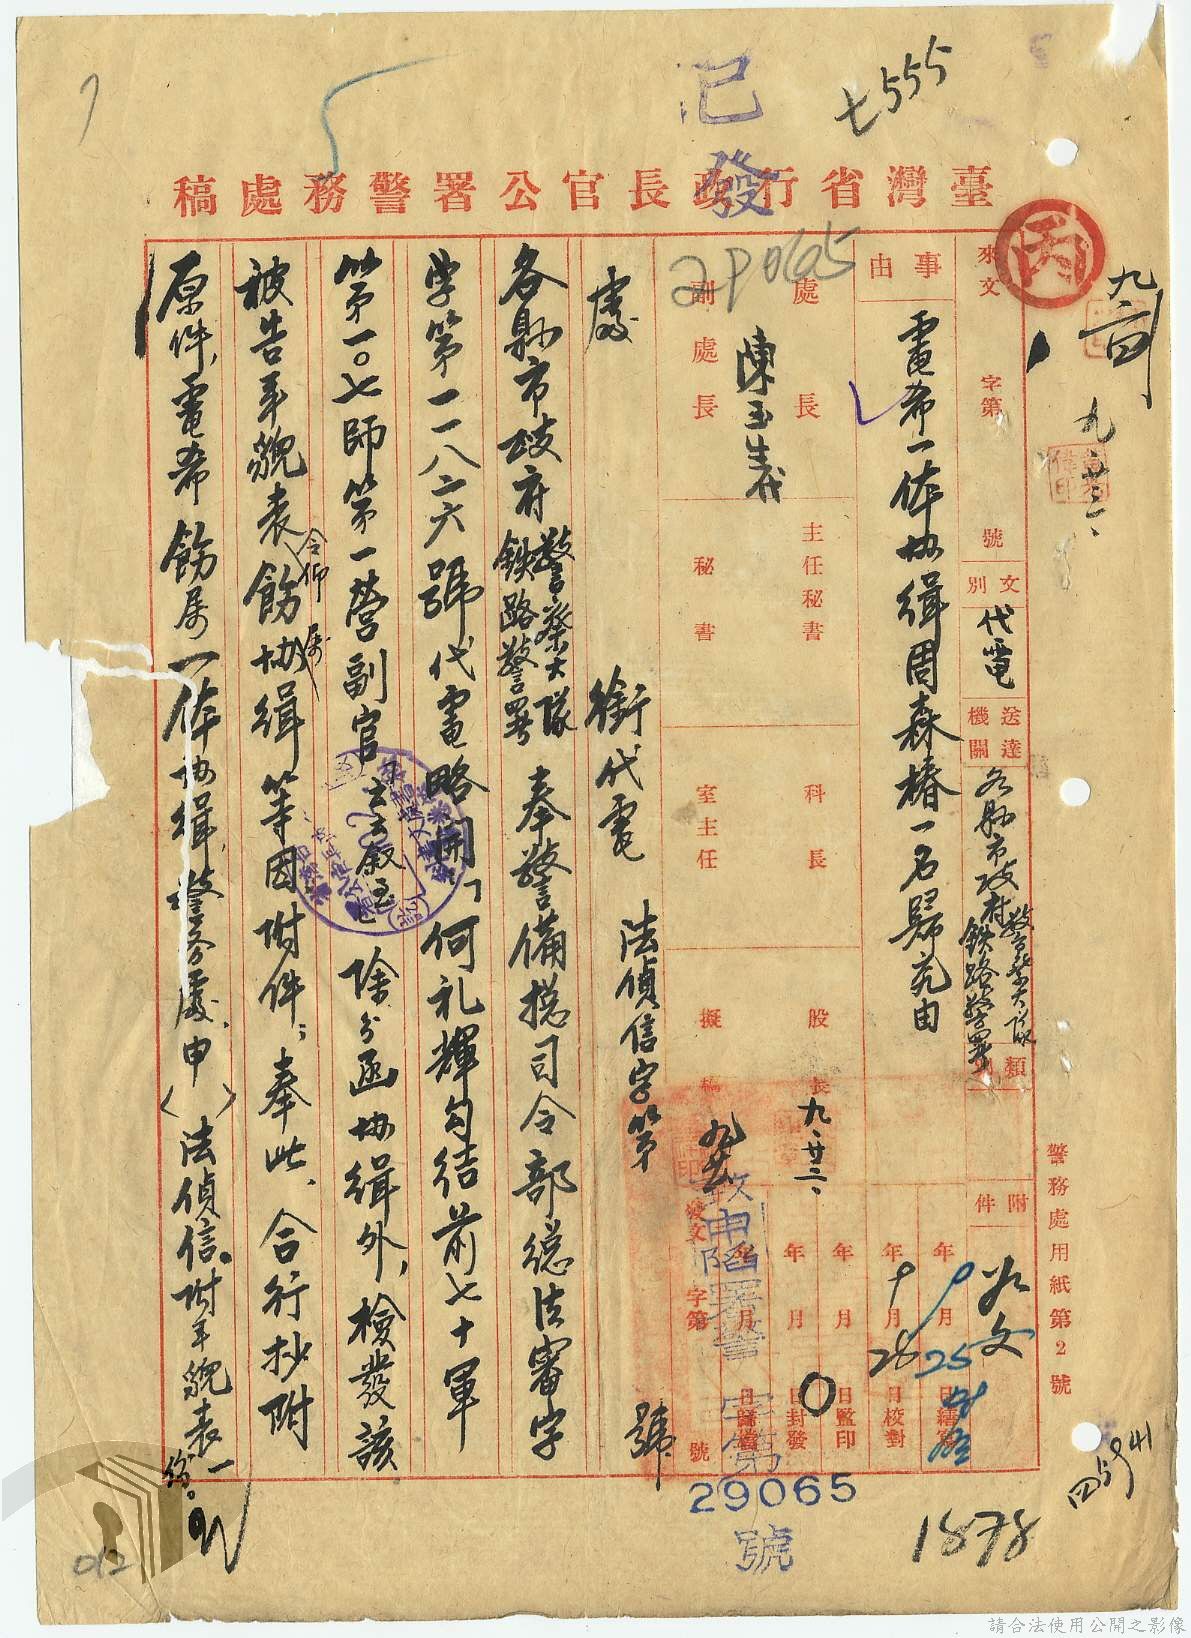 七555
已發
臺灣省行政長官公署警務處稿
丙
九、廿三、
來文 字第 號
文別 代電
送達機關 各縣市政府 警察大隊 鐵路警署
類
附件 如文
事由
電希一体协缉周森椿一名歸究由
處長
副處長
陳玉義
主任秘書
秘書
科長
室主任
股長
擬稿
九、廿三、
年 月 日繕寫
9 25
年 月 日校對
9 28
年 月 日監印
年 月 日封發
年 月 日歸檔
發文 字第 號
29065
29065
處 銜代電 法偵信字第 號
各縣市政府 警察大隊 鐵路警署 奉警備揔司令部總法審字
字第一一八二六號代電略開「何礼輝勾结前七十軍
第一〇七師第一營副官 云云叙至」除分函协缉外,檢發該
被告年貌表飭协缉等因附件;奉此、合行抄附
令仰 屬
原件,電希飭属一体协缉,警务處、申( )法偵信。附年貌表一份。
警務處用紙第2號
1878
012
請合法使用公開之影像